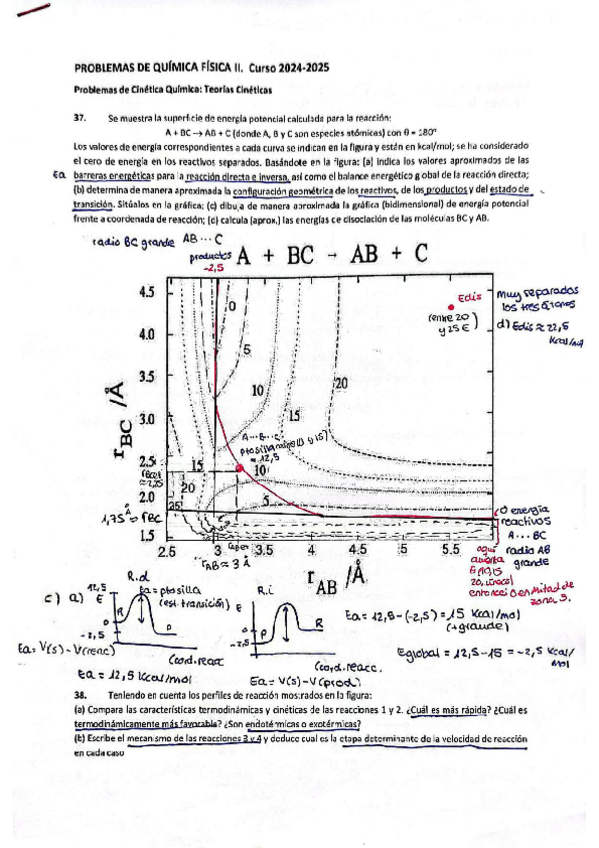 PROBLEMAS DE QUÍMICA FÍSICA II. Curso 2024-2025
Problemas de Cinética Química: Teorías Cinéticas
37. Se muestra la superficie de energía potencial calculada para la reacción:
A + BC → AB + C (donde A, B y C son especies atómicas) con θ = 180°
Los valores de energía correspondientes a cada curva se indican en la figura y están en kcal/mol; se ha considerado
el cero de energía en los reactivos separados. Basándote en la figura: (a) indica los valores aproximados de las
Ea barreras energéticas para la reacción directa e inversa, así como el balance energético global de la reacción directa;
(b) determina de manera aproximada la configuración geométrica de los reactivos, de los productos y del estado de
transición. Sitúalos en la gráfica; (c) dibuja de manera aproximada la gráfica (bidimensional) de energía potencial
frente a coordenada de reacción; (d) calcula (aprox.) las energías de disociación de las moléculas BC y AB.
radio BC grande AB ··· C
productos
-2,5
A + BC → AB + C
4.5
4.0
3.5
3.0
2.5
2.0
1.5
r BC /Å
0
5
10
15
20
Edis
(entre 20
y 25 E)
muy separados
los tres átomos
d) Edis ≈ 22,5
Kcal/mol
A ··· B ··· C
≈ 12,5
15
10
20
25
5
1,75 Å = rBC
2.5
3
3.5
4.5
5
5.5
rAB ≈ 3 Å
r AB /Å
0 energía
reactivos
A ··· BC
radio AB
grande
aquí
c) a)
R.d
12,5
E
R
0
-2,5
P
Ea = pto silla
(est. transición)
Coord. reacc
Ea = V(s) - V(reac)
Ea = 12,5 Kcal/mol
R.i
E
0
-2,5
P
R
Coord. reacc.
Ea = V(s) - V(prod)
Ea = 12,5 - (-2,5) = 15 Kcal/mol
(+ grande)
Eglobal = 12,5 - 15 = -2,5 Kcal/
mol
38. Teniendo en cuenta los perfiles de reacción mostrados en la figura:
(a) Compara las características termodinámicas y cinéticas de las reacciones 1 y 2. ¿Cuál es más rápida? ¿Cuál es
termodinámicamente más favorable? ¿Son endotérmicas o exotérmicas?
(b) Escribe el mecanismo de las reacciones 3 y 4 y deduce cual es la etapa determinante de la velocidad de reacción
en cada caso